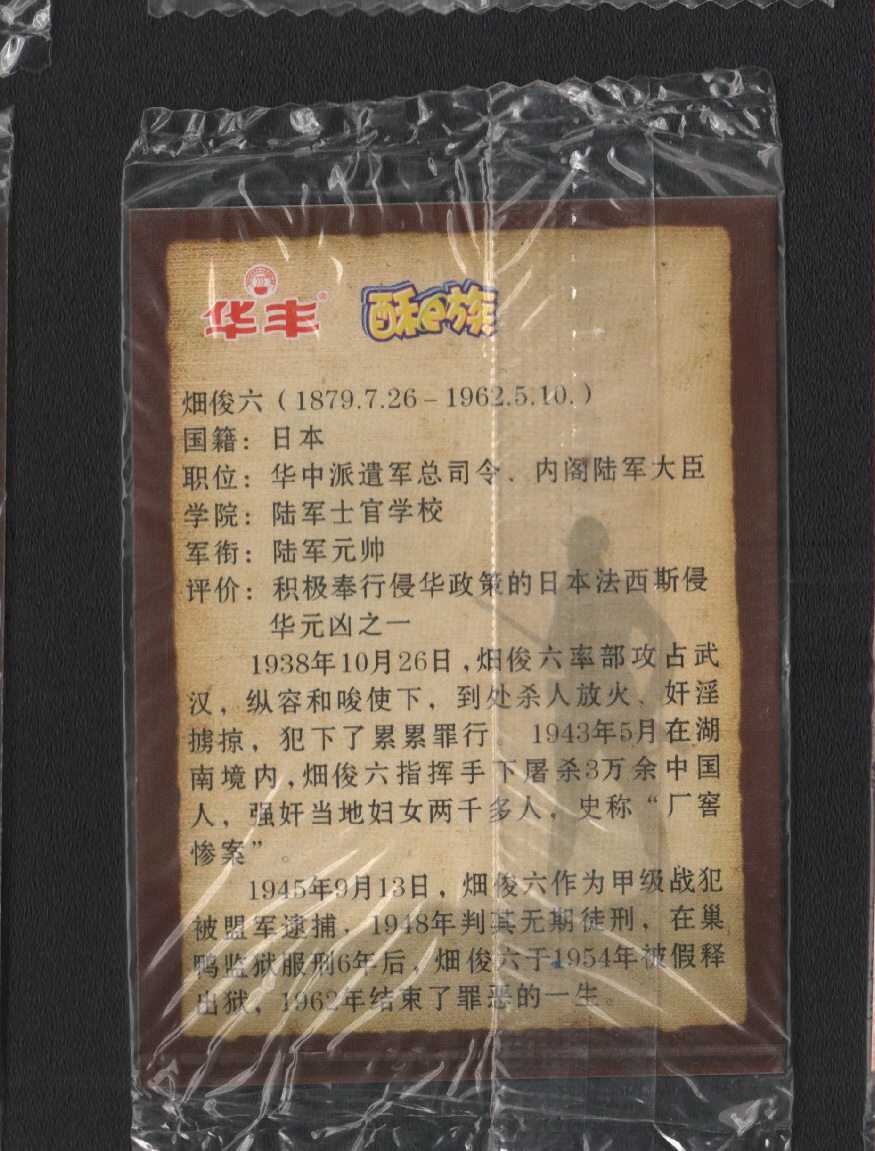 华丰®
酥e族
畑俊六（1879.7.26－1962.5.10.）
国籍：日本
职位：华中派遣军总司令、内阁陆军大臣
学院：陆军士官学校
军衔：陆军元帅
评价：积极奉行侵华政策的日本法西斯侵
华元凶之一
1938年10月26日，畑俊六率部攻占武
汉，纵容和唆使下，到处杀人放火、奸淫
掳掠，犯下了累累罪行。1943年5月在湖
南境内，畑俊六指挥手下屠杀3万余中国
人，强奸当地妇女两千多人，史称“厂窖
惨案”。
1945年9月13日，畑俊六作为甲级战犯
被盟军逮捕，1948年判其无期徒刑，在巢
鸭监狱服刑6年后，畑俊六于1954年被假释
出狱，1962年结束了罪恶的一生。